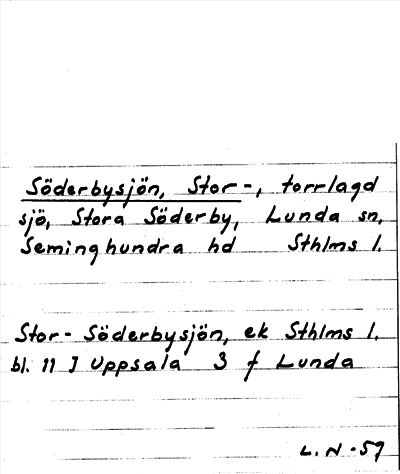 Söderbysjön, Stor-, torrlagd
sjö, Stora Söderby, Lunda sn,
Seminghundra hd Sthlms l.
Stor-Söderbysjön, ek Sthlms l.
bl. 11 J Uppsala 3 f Lunda
L.N-59